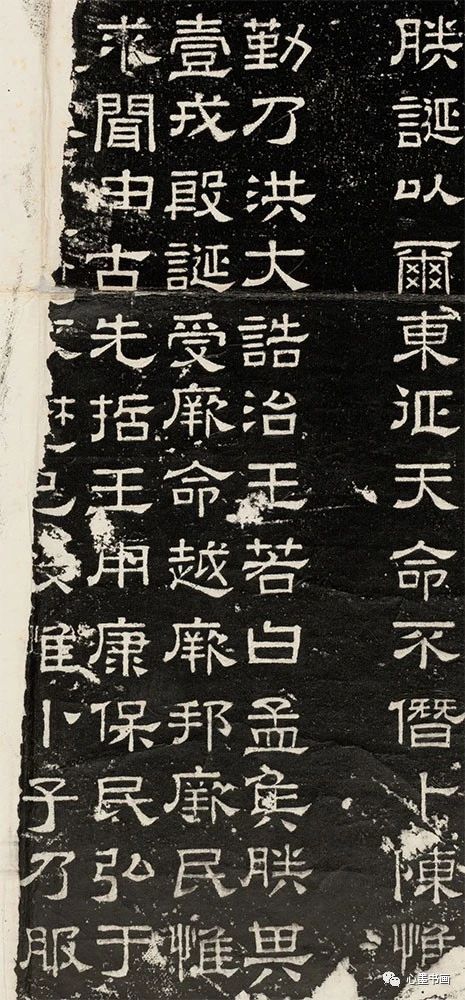 朕誕以爾東征天命不僭卜陳惟
勤乃洪大誥治王若曰孟侯朕其
壹戎殷誕受厥命越厥邦厥民惟
求聞由古先哲王用康保民弘于
惟小子乃服
心墨书画